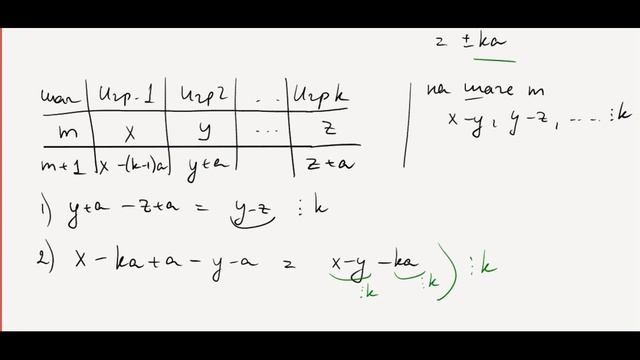 z ± ka
шаг | Игр. 1 | Игр 2 | ... | Игр k
m | x | y | ... | z
m+1 | x -(k-1)a | y+a | | z+a
на шаге m
x-y, y-z, .... ⋮k
1) y+a -z+a = y-z ⋮k
2) x - ka + a - y - a = x-y - ka ) ⋮k
⋮k ⋮k